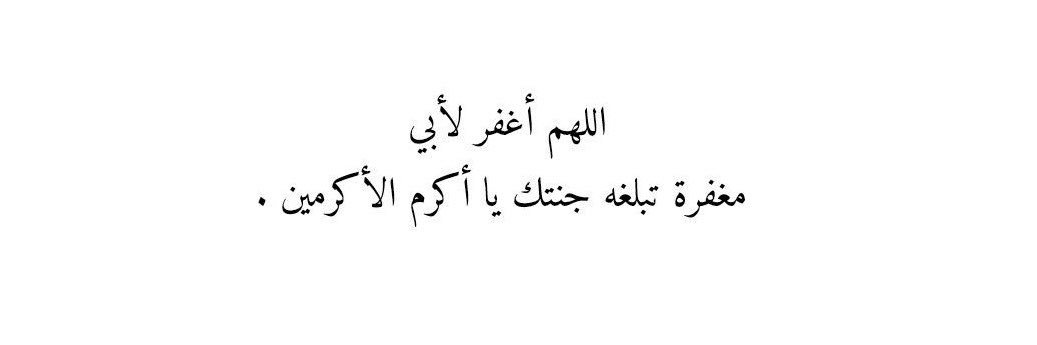 اللهم أغفر لأبي
مغفرة تبلغه جنتك يا أكرم الأكرمين .